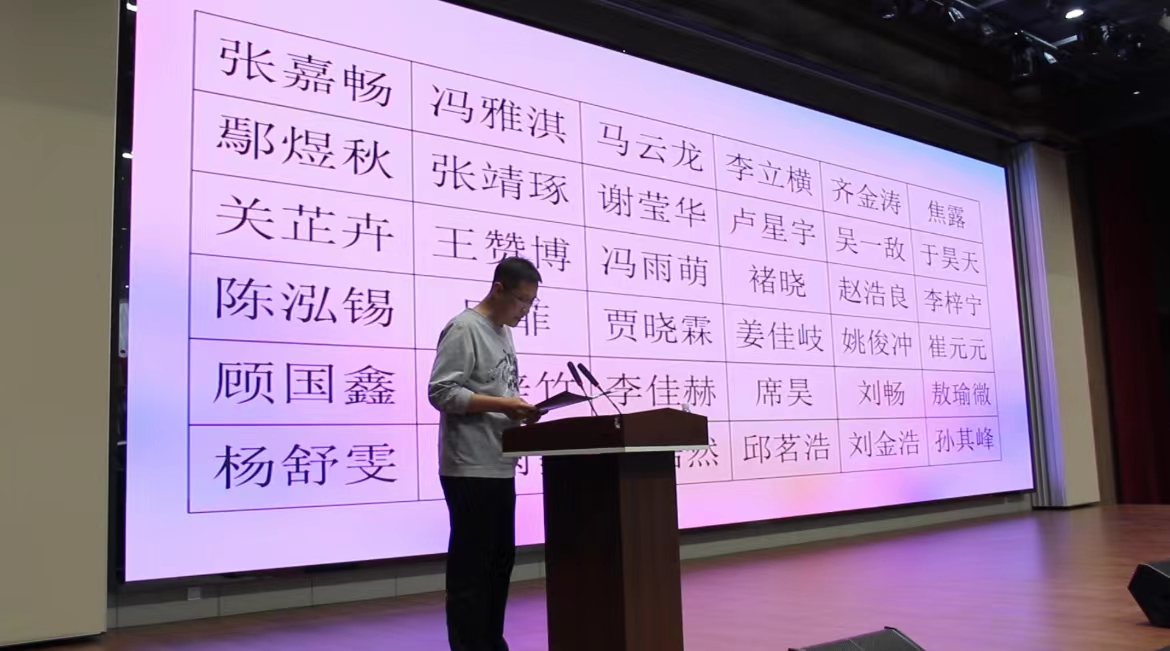 张嘉畅 冯雅淇 马云龙 李立横 齐金涛 焦露
鄢煜秋 张靖琢 谢莹华 卢星宇 吴一敌 于昊天
关芷卉 王赞博 冯雨萌 褚晓 赵浩良 李梓宁
陈泓锡 菲 贾晓霖 姜佳岐 姚俊冲 崔元元
顾国鑫 李佳赫 席昊 刘畅 敖瑜微
杨舒雯 然 邱茗浩 刘金浩 孙其峰